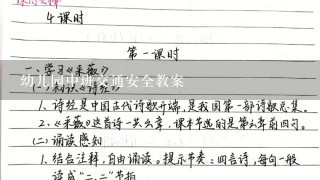 4课时
第一课时
一、学习《采薇》
幼儿园中班交通安全教案
(一)初识《诗经》
1、诗经是中国古代诗歌开端,是我国第一部诗歌总集。
2、《采薇》这首诗一共六章,课本节选的是第六章前四句。
(二)诵读感知
1、结合注释,自由诵读。提示节奏:四言诗,每句一般
读成“二、二”节拍